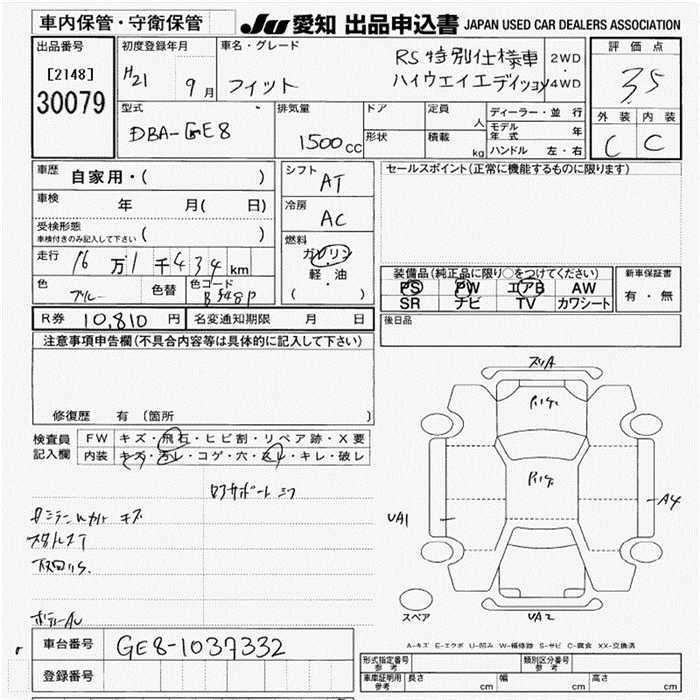 車内保管・守衛保管
JU 愛知 出品申込書 JAPAN USED CAR DEALERS ASSOCIATION
出品番号
[2148]
30079
初度登録年月
H21 9月
車名・グレード
フィット
RS 特別仕様車
ハイウエイエディション
2WD
・
4WD
評価点
3.5
外装 内装
C C
型式
DBA-GE8
排気量
1500cc
ドア
形状
定員 人
積載 kg
ディーラー・並行
モデル年式 年
ハンドル 左・右
車歴 自家用・( )
車検 年 月( 日)
受検形態
車検付きのみ記入して下さい ( )
走行 16万1千434km
色 ブルー 色替 色コード B548P
シフト AT
冷房 AC
燃料
ガソリン
軽・油
( )
セールスポイント(正常に機能するものに限ります)
装備品(純正品に限り○をつけてください)
PS PW エアB AW
SR ナビ TV カワシート
新車保証書
有・無
R券 10,810円 名変通知期限 月 日
後日品
注意事項申告欄(不具合内容等は具体的に記入して下さい)
修復歴 有(箇所
検査員記入欄
FW キズ・飛石・ヒビ割・リペア跡・X要
内装 キズ・汚レ・コゲ・穴・スレ・キレ・破レ
キズ
UA1
A4
UA2
スペア
A-キズ E-エクボ U-凹み W-補修跡 S-サビ C-腐食 XX-交換済
車台番号 GE8-1037332
登録番号
形式指定番号 参考
類別区分番号 参考
車庫証明用 参考 長さ cm 幅 cm 高さ cm